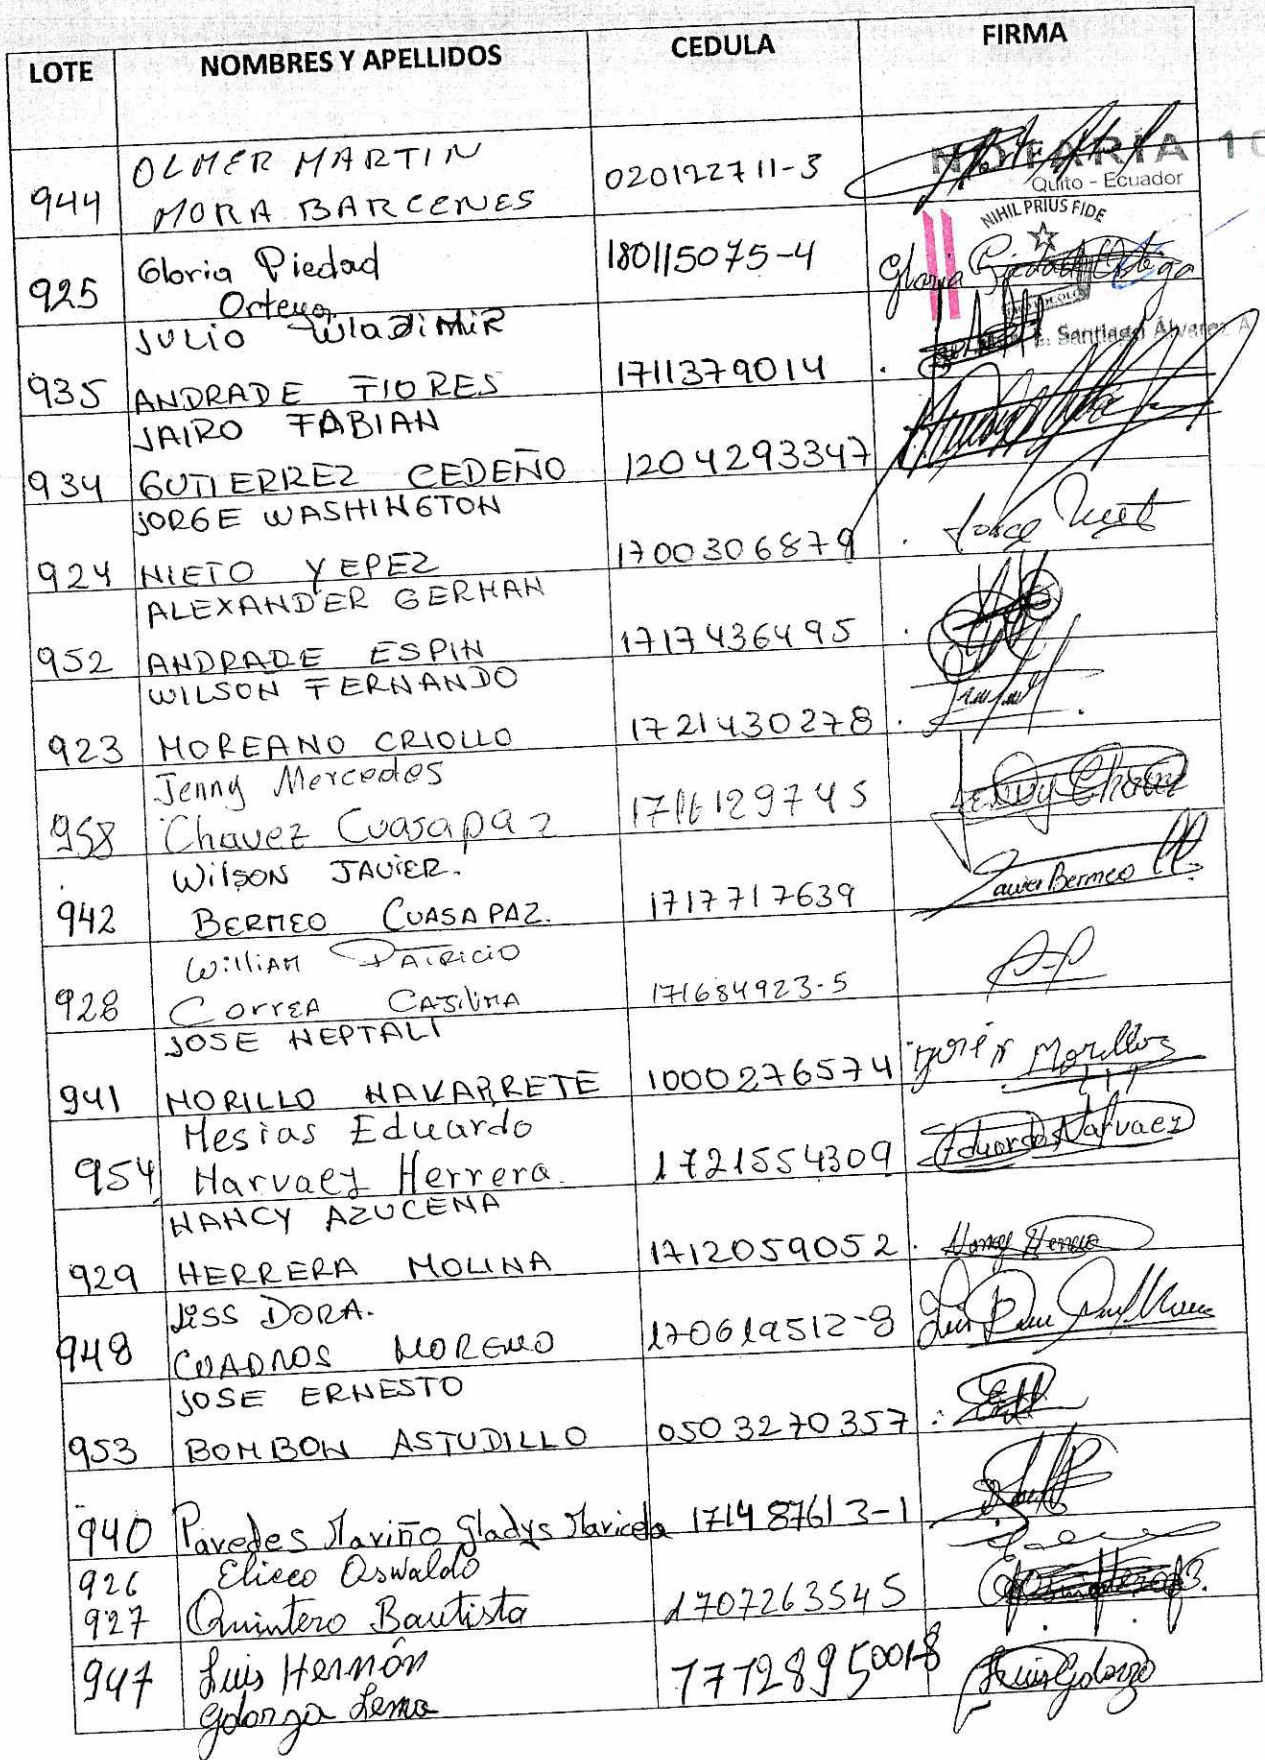 LOTE NOMBRES Y APELLIDOS CEDULA FIRMA
OLMER MARTIN
944 MORA BARCENES 020122711-3
NOTARÍA 10
Quito - Ecuador
NIHIL PRIUS FIDE
Gloria Piedad
925 Ortega 180115075-4 Gloria Piedad Ortega
Santiago Álvarez A
JULIO WladiMiR
935 ANDRADE FLORES 1711379014
JAIRO FABIAN
934 GUTIERREZ CEDEÑO 1204293347
JORGE WASHINGTON
924 NIETO YEPEZ 1700306879 Jorge Nieto
ALEXANDER GERMAN
952 ANDRADE ESPIN 1717436495
WILSON FERNANDO
923 MOREANO CRIOLLO 1721430278
Jenny Mercedes
958 Chavez Cuasapaz 1716129745 Jenny Chavez
Wilson JAVIER.
942 BERMEO CUASAPAZ. 1717717639 Javier Bermeo
William PATRICIO
928 CORREA 171684923-5
JOSE NEPTALI
941 MORILLO NAVARRETE 1000276574 Morillo
Mesias Eduardo
954 Narvaez Herrera. 1721554309 Eduardo Narvaez
NANCY AZUCENA
929 HERRERA MOLINA 1712059052 Nancy Herrera
LISS DORA.
948 CUADROS MORENO 170619512-8
JOSE ERNESTO
953 BOMBON ASTUDILLO 0503270357
940 Paredes Mariño Gladys Maricela 171487613-1
926 Eliceo Oswaldo
927 Quintero Bautista 1707263545
947 Luis Hernán
Golorza Lema Luis Golorzo